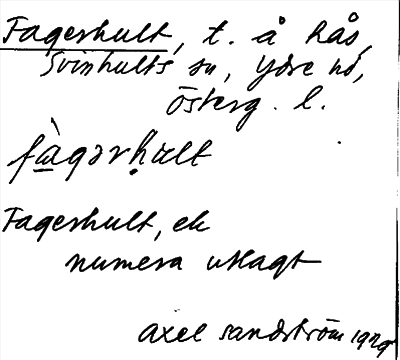 Fagerhult, t. å Rås,
Svinhults sn, Ydre hd,
Österg. l.
fàgərhu̇lt
Fagerhult, ek
numera utlagt
Axel Sandström 1929